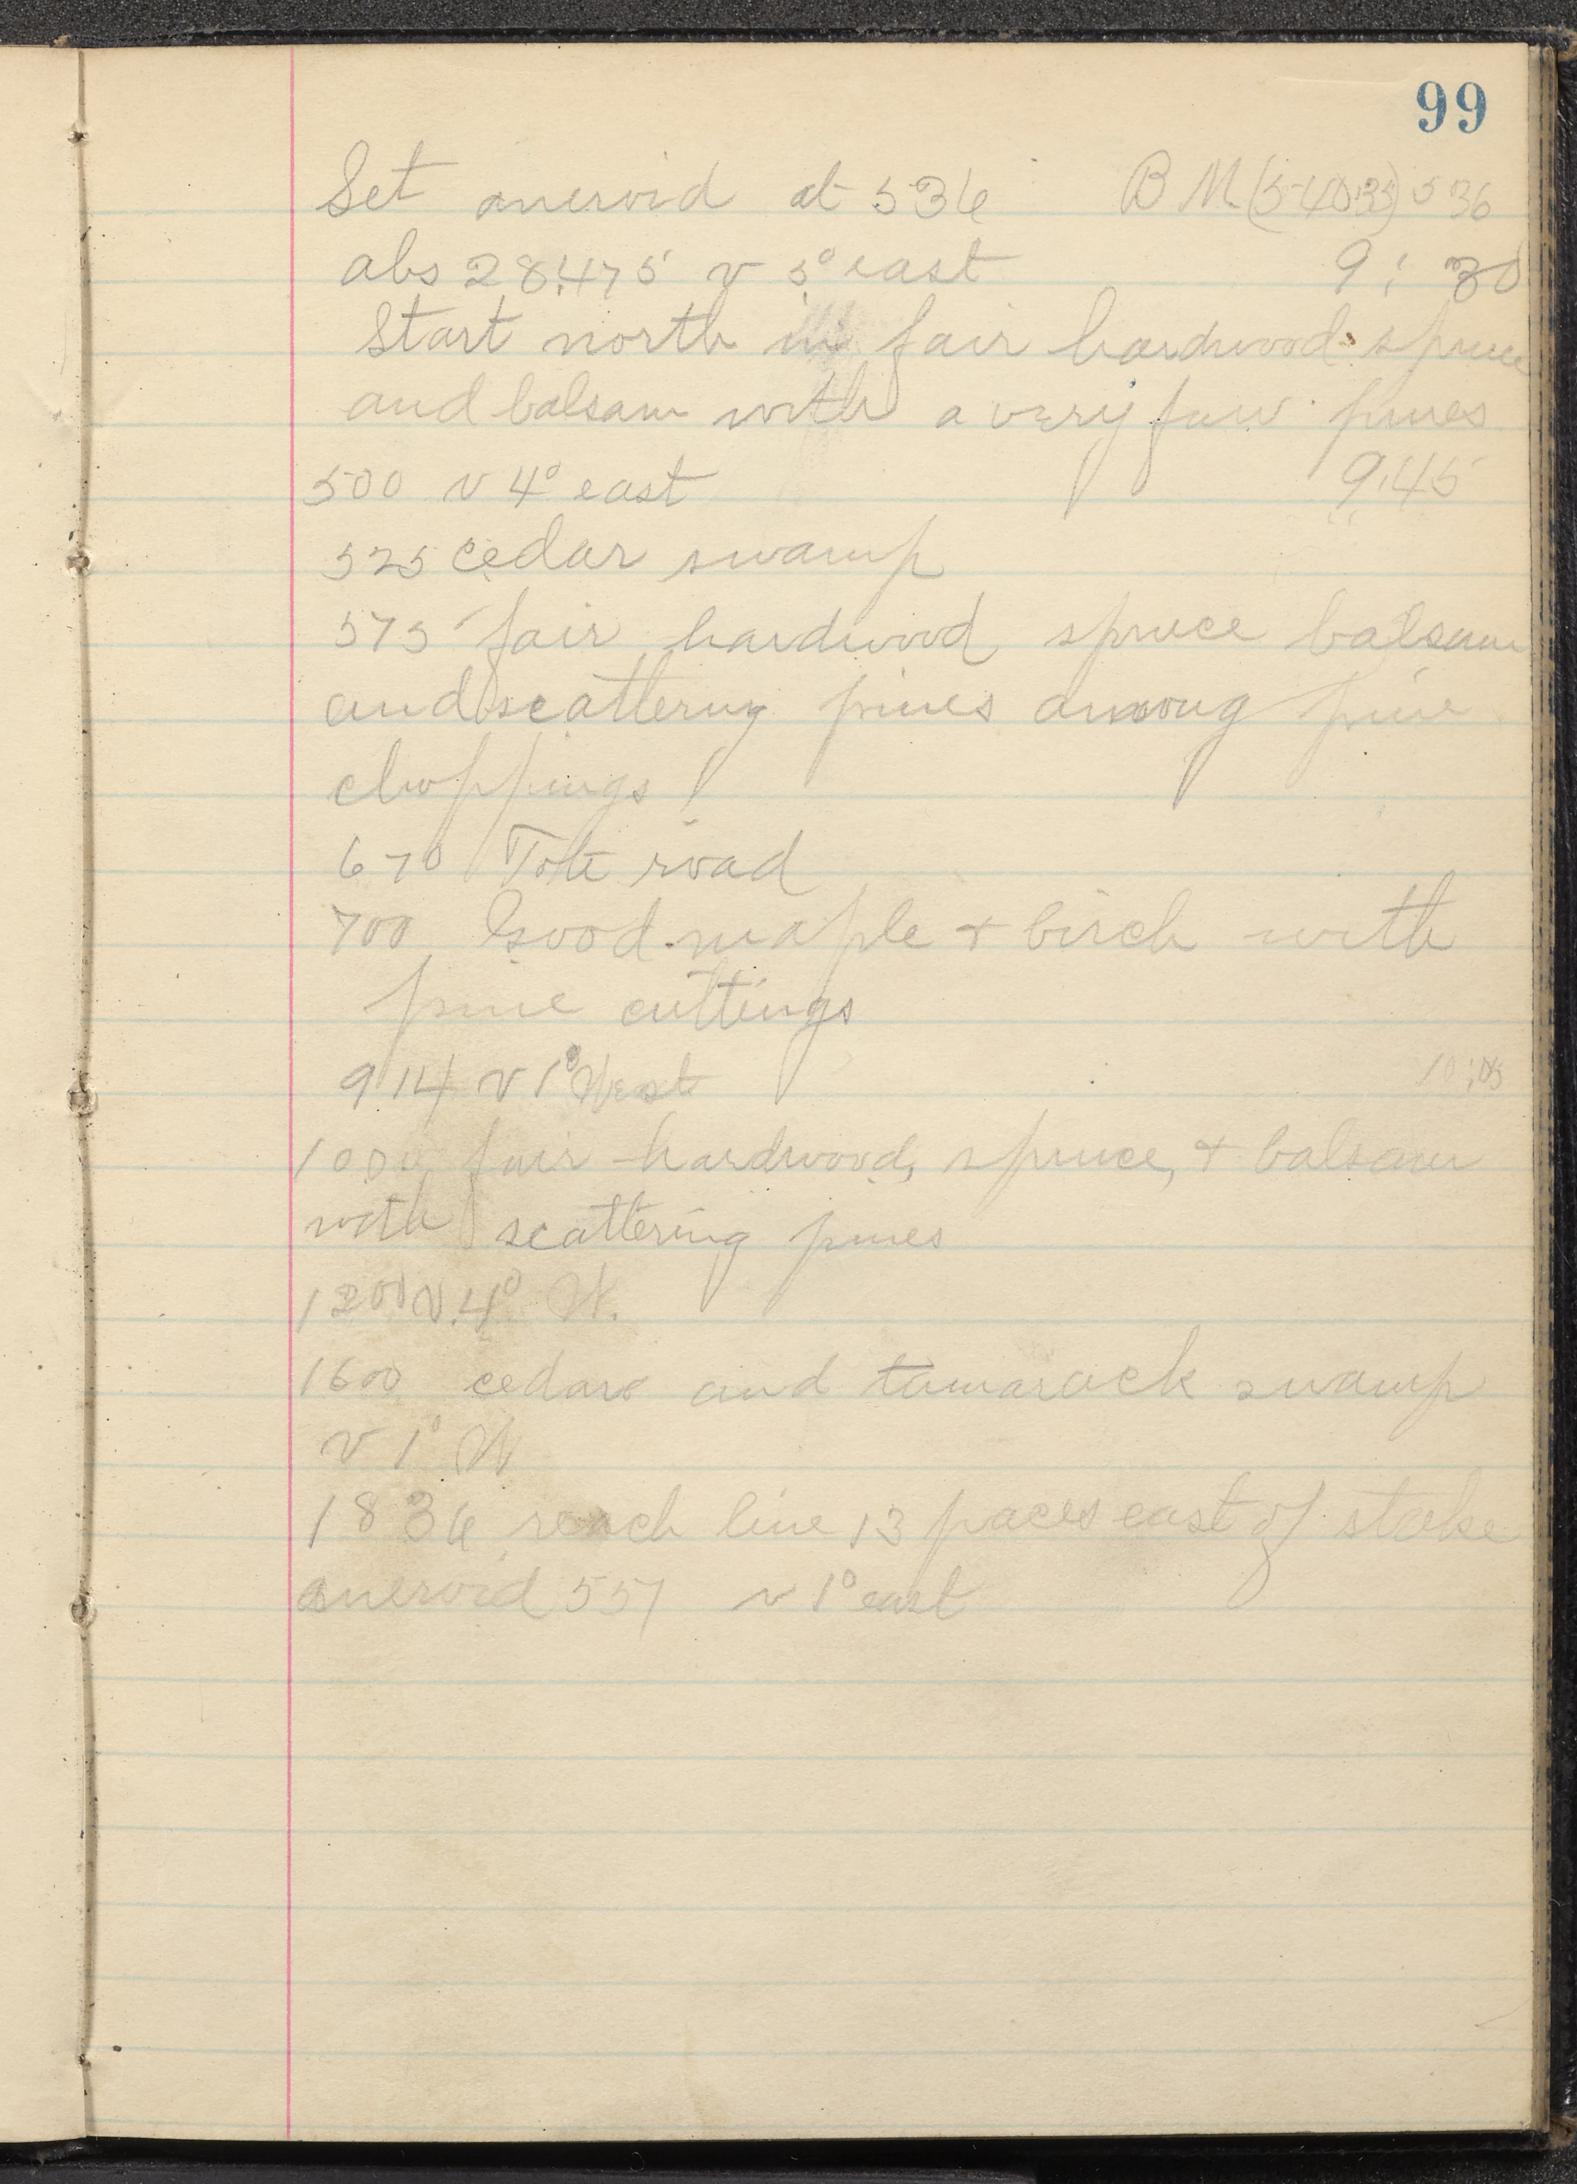 99
Set aneroid at 536 B M (540.35) 536
abs 28.475 v 5° east 9:30
Start north in fair hardwood spruce
and balsam with a very few pines
500 v 4° east 9.45
525 cedar swamp
575 fair hardwood spruce balsam
and scattering pines among pine
choppings
670 Tote road
700 Good maple + birch with
pine cuttings
914 v 1° West 10:05
1000 fair hardwood, spruce, + balsam
with scattering pines
1200 v 4° W.
1600 cedar and tamarack swamp
v 1° W
1836 reach line 13 paces east of stake
aneroid 551 v 1° east